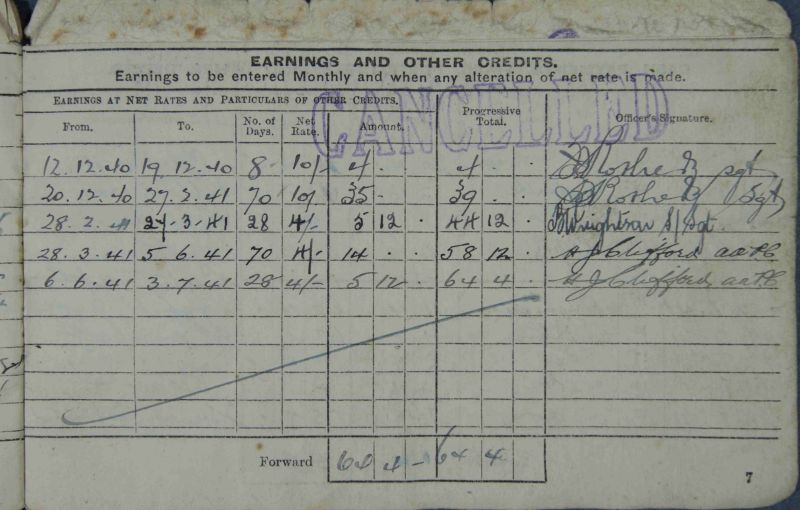 EARNINGS AND OTHER CREDITS.
Earnings to be entered Monthly and when any alteration of net rate is made.
CANCELLED
EARNINGS AT NET RATES AND PARTICULARS OF OTHER CREDITS.
From. To. No. of Days. Net Rate. Amount. Progressive Total. Officer's Signature.
12.12.40 19.12.40 8 10/- 4 . 4 . . Sgt
20.12.40 27.2.41 70 10/- 35 - 39 . . Sgt
28.2.41 27-3-41 28 4/- 5 12 . 44 12 . Wrightson S/Sgt.
28.3.41 5.6.41 70 4/- 14 . . 58 12 . A J Clifford
6.6.41 3.7.41 28 4/- 5 12 . 64 4 . A J Clifford
Forward 64 4 - 64 4
7